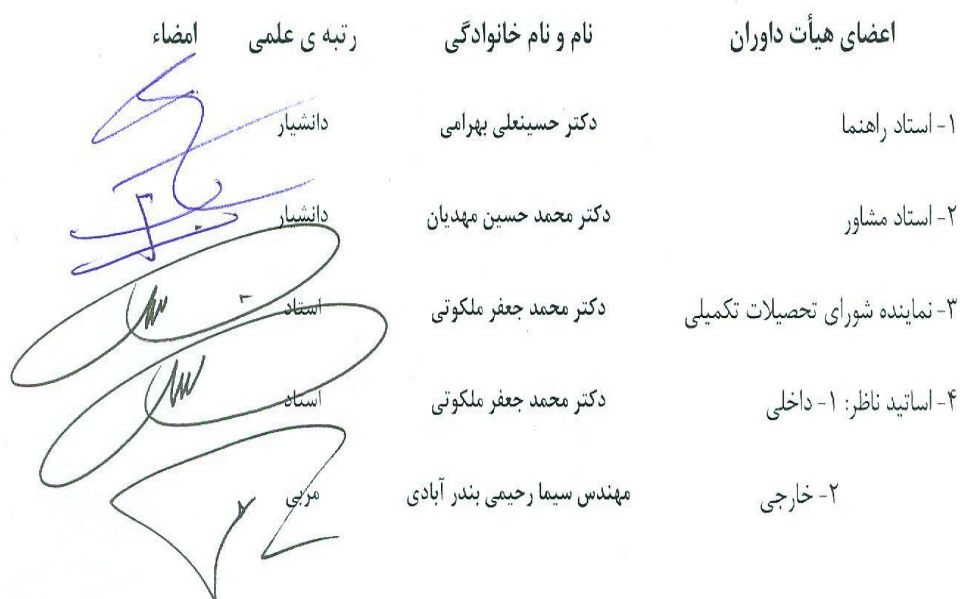 اعضای هیأت داوران نام و نام خانوادگی رتبه ی علمی امضاء
۱- استاد راهنما دکتر حسینعلی بهرامی دانشیار
۲- استاد مشاور دکتر محمد حسین مهدیان دانشیار
۳- نماینده شورای تحصیلات تکمیلی دکتر محمد جعفر ملکوتی استاد
۴- اساتید ناظر: ۱- داخلی دکتر محمد جعفر ملکوتی استاد
۲- خارجی مهندس سیما رحیمی بندر آبادی مربی